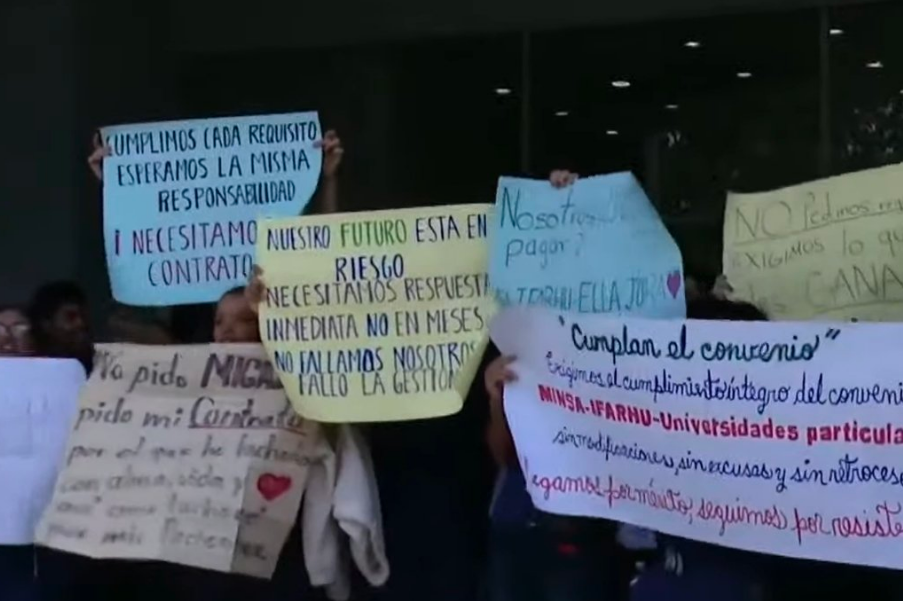 CUMPLIMOS CADA REQUISITO
ESPERAMOS LA MISMA
RESPONSABILIDAD
¡ NECESITAMO
CONTRATO
NUESTRO FUTURO ESTA EN
RIESGO
NECESITAMOS RESPUESTA
INMEDIATA NO EN MESES
NO FALLAMOS NOSOTROS
FALLO LA GESTION
Nosotros
pagar?
ELLA
NO Pedimos
EXIGIMOS lo qu
GANA
No pido MIGA
pido mi Contrato
por el que he luchado
con alma, vida y
"Cumplan el convenio"
Exigimos el cumplimiento íntegro del conveni
MINSA-IFARHU-Universidades particula
sin modificaciones, sin excusas y sin retroceso
egamos por mérito, seguimos por resiste